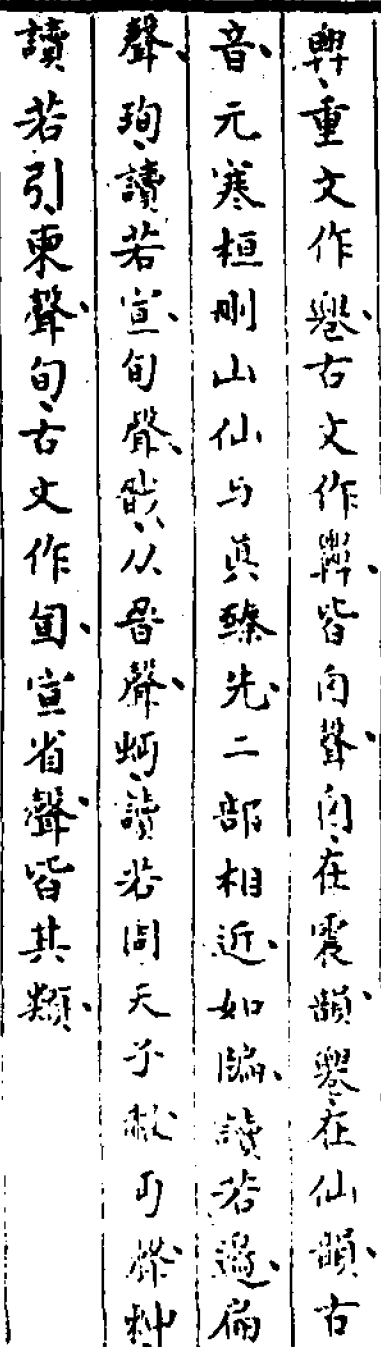 重文作䙴古文作皆囟聲囟在震韻䙴在仙韻古
音元寒桓刪山仙与真臻先二部相近如讀若邊扁
聲珣讀若宣旬聲从昏聲蚵讀若周天子赧丏聲
讀若引柬聲旬古文作宣省聲皆其類